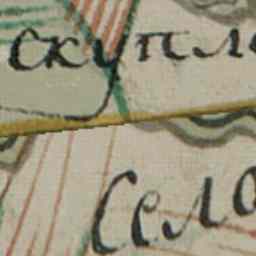 скупле
Село